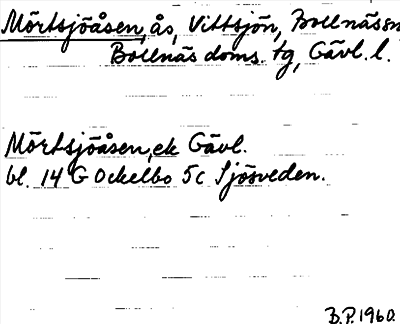 Mörtsjöåsen, ås, Vittsjön, Bollnässn
Bollnäs doms. tg, Gävl. l.
Mörtsjöåsen, ek Gävl.
bl. 14 G Ockelbo 5c Sjösveden.
B.P. 1960.